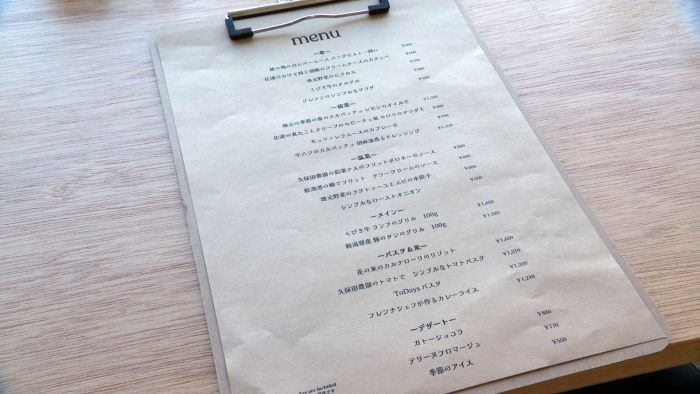 menu
~肴~
越の鶏の白レバームース パンデピスと一緒に ¥660
佐渡のおけさ柿と胡桃のクリームチーズのカナッペ ¥660
地元野菜のピクルス
くびき牛のタルタル
クレソンのシンプルなサラダ
~前菜~
地元の季節の魚のカルパッチョ レモンのオイルで ¥1,200
佐渡の真だことオリーブのセビーチェ風 セロリのサラダと
モッツァレラムースのカプレーゼ
牛ハツのカルパッチョ 胡麻油香るドレッシング ¥1,200
~温菜~
久保田農園の ナスのフリットボロネーゼソース ¥880
でフリット サワークリームのソース ¥880
地元野菜のラタトゥーユとエビの水餃子
シンプルなローストオニオン ¥550
~メイン~
くびき牛 ランプのグリル 100g ¥1,650
新潟県産 豚のタンのグリル 100g ¥1,320
~パスタ&米~
花の米のカルナローリのリゾット ¥1,650
久保田農園のトマトで シンプルなトマトパスタ ¥1,210
ToDaysパスタ ¥1,300
フレンチシェフが作るカレーライス ¥1,210
~デザート~
ガトーショコラ ¥880
テリーヌフロマージュ ¥770
季節のアイス ¥550
are included